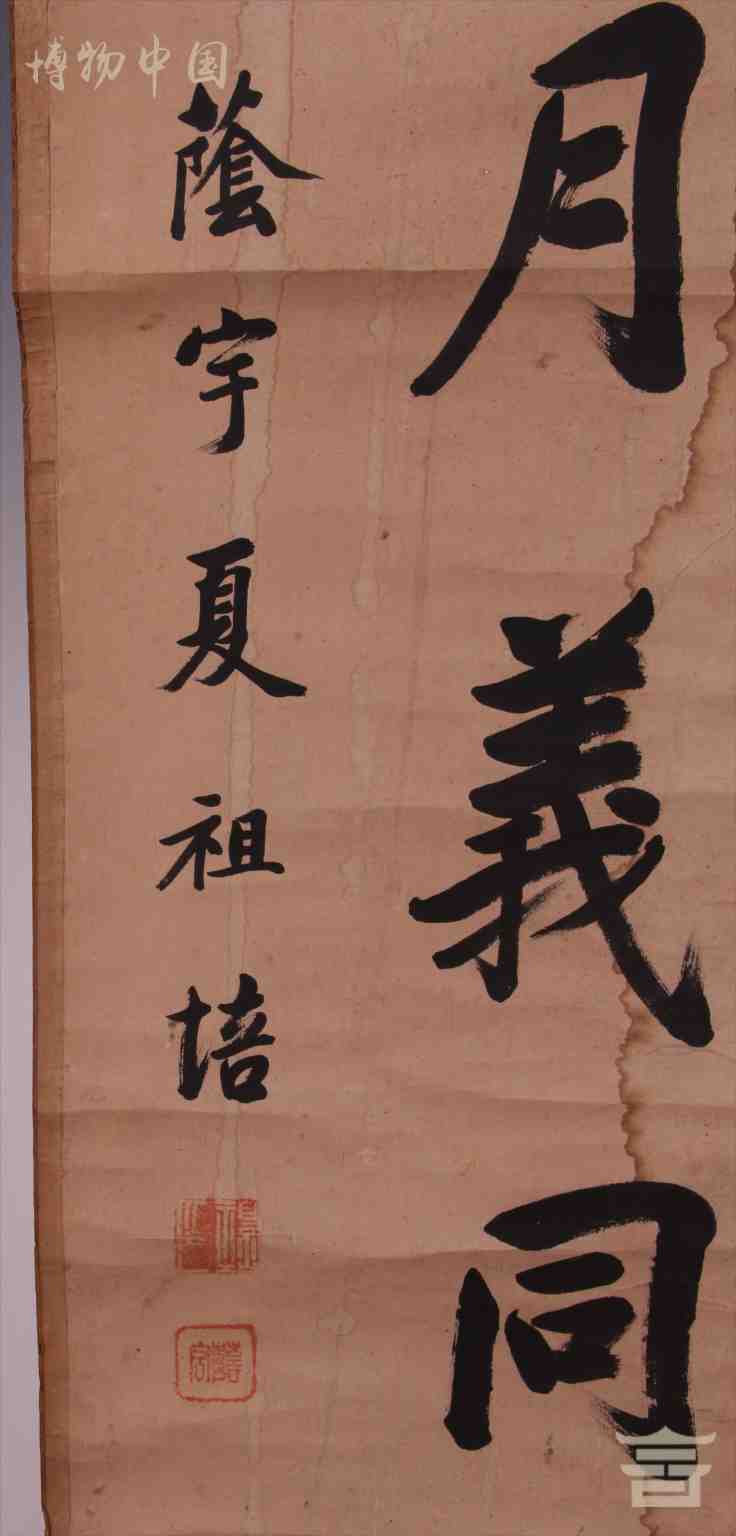 博物中国
月義同
蔭宇夏祖培